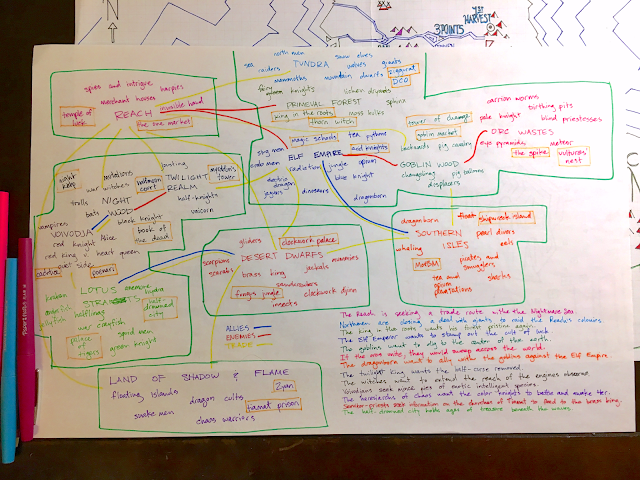 1ST
HARVEST
3 POINTS
north men
snow elves
sea
raiders
TUNDRA
wolves
giants
ziggurat
DCO
mammoths
mountain dwarfs
knights
lichen druids
PRIMEVAL FOREST
sphinx
king in the roots
moss hulks
thorn witch
spies and intrigue
harpies
merchant houses
invisible hand
temple of
luck
REACH
the one market
magic schools
tea
pythons
acid knights
ELF EMPIRE
radiation
jungle
opium
blue knight
electric
dragon
jagers
dinosaurs
dragonborn
tower of
goblin market
backwards
pig cavalry
GOBLIN WOOD
changeling
pig balloons
displacers
carrion worms
birthing pits
pale knight
blind priestesses
ORC WASTES
eye pyramids
meteor
the spike
vultures'
nest
night
keep
war witches
halfmoon
court
jousting
TWILIGHT
REALM
trolls
NIGHT
WOOD
half-knights
unicorn
bats
vampires
black knight
VOIVODJA
book of
the dead
red knight
Alice
red king
heart queen
poenari
LOTUS
STRAITS
anemone
hydra
half-drowned
city
halflings
war crayfish
squid men
palace
of
tigers
green knight
gliders
clockwork palace
scorpions
DESERT DWARFS
mummies
scarabs
brass king
jackals
sandcrawlers
fungus jungle
clockwork djinn
insects
dragonborn
float
shipwreck island
SOUTHERN
ISLES
pearl divers
whaling
eels
MotBM
pirates and
smugglers
tea and
opium
plantations
sharks
ALLIES
ENEMIES
TRADE
LAND OF SHADOW & FLAME
floating islands
dragon cults
Zyan
snake men
tiamat prison
chaos warriors
The Reach is seeking a trade route with the Nightmare Sea
Northmen are closing a deal with giants to raid the Reach's colonies.
The king in the roots wants his forest pristine again.
The Elf Emperor wants to stamp out the cult of
The goblins want to dig to the center of the earth.
If the orcs unite, they would sweep across the world.
The dragonborn want to ally with the goblins against the Elf Empire.
The twilight king wants the half-curse removed.
The witches want to extend the reach of the engines obscure.
Voivodjans seek mince pies of exotic intelligent species.
The hierarchs of chaos want the color knights to battle and awake her.
seek information on the of Tiamat to feed to the brass king.
The half-drowned city holds ages of treasure beneath the waves.